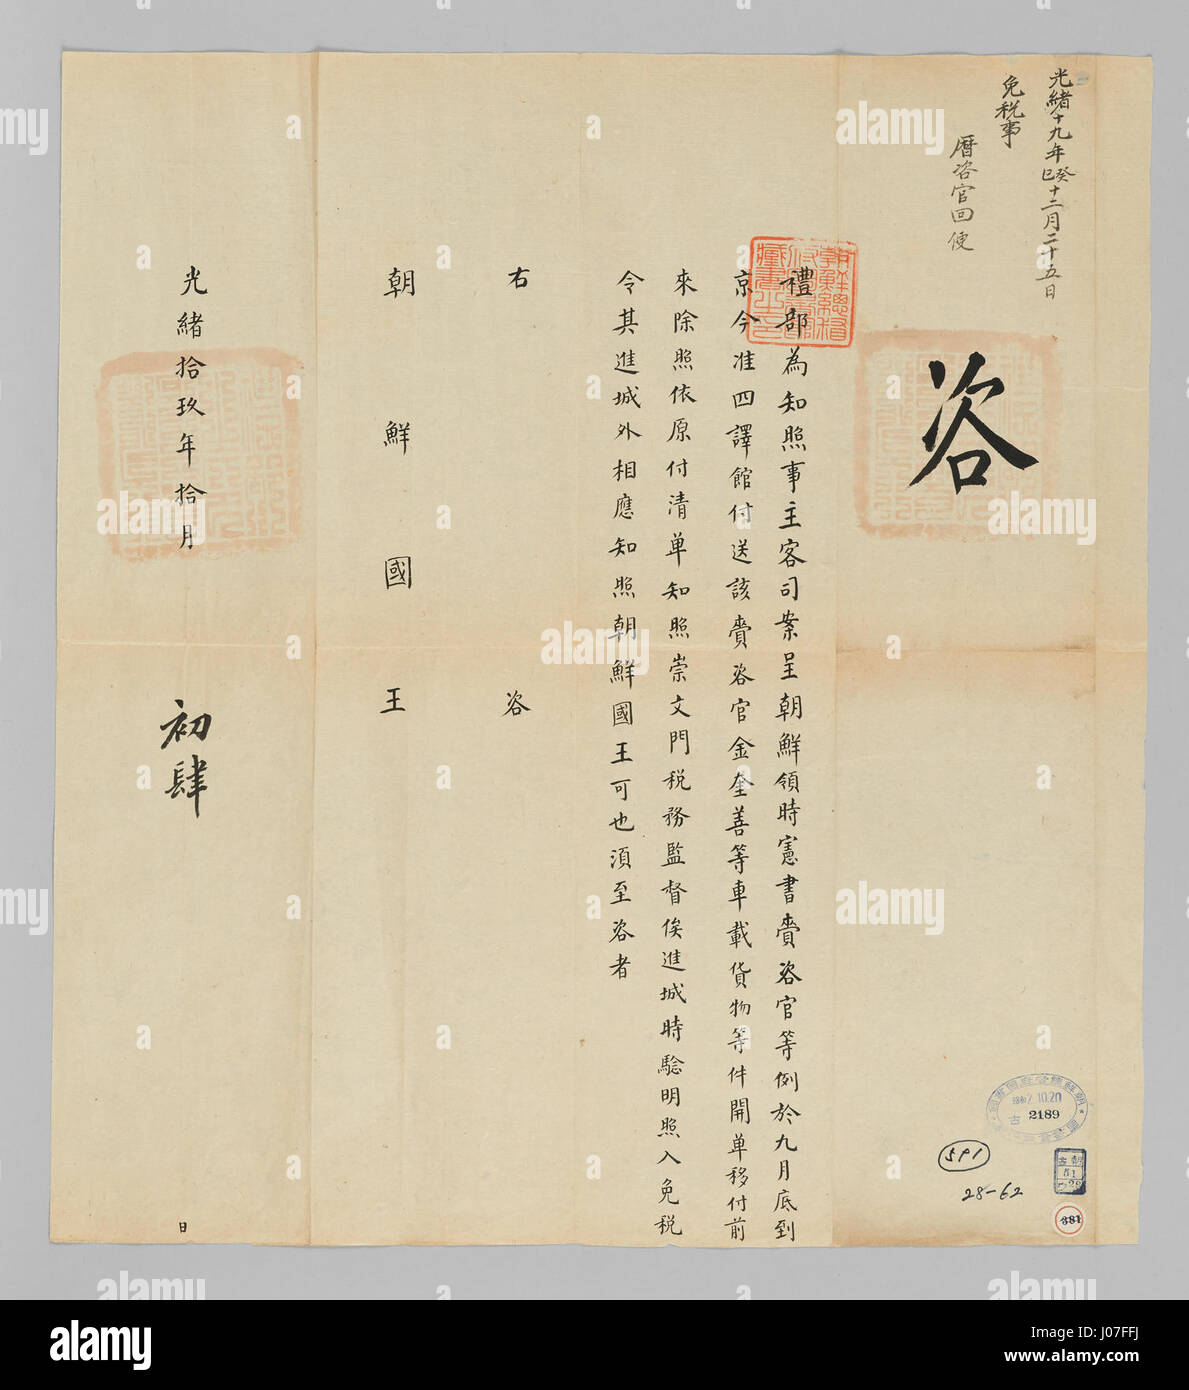 光緒十九年癸巳十二月二十五日
免税事
曆咨官回便
咨
禮部為知照事主客司案呈朝鮮領時憲書賫咨官等例於九月底到
京今准四譯館付送該賫咨官金奎善等車載貨物等件開单移付前
來除照依原付清单知照崇文門税務監督俟進城時驗明照入免税
令其進城外相應知照朝鮮國王可也湏至咨者
右咨
朝鮮國王
光緒拾玖年拾月初肆日
2.10.20
2189
591
28-62
881
alamy
Image ID: J07FFJ
www.alamy.com